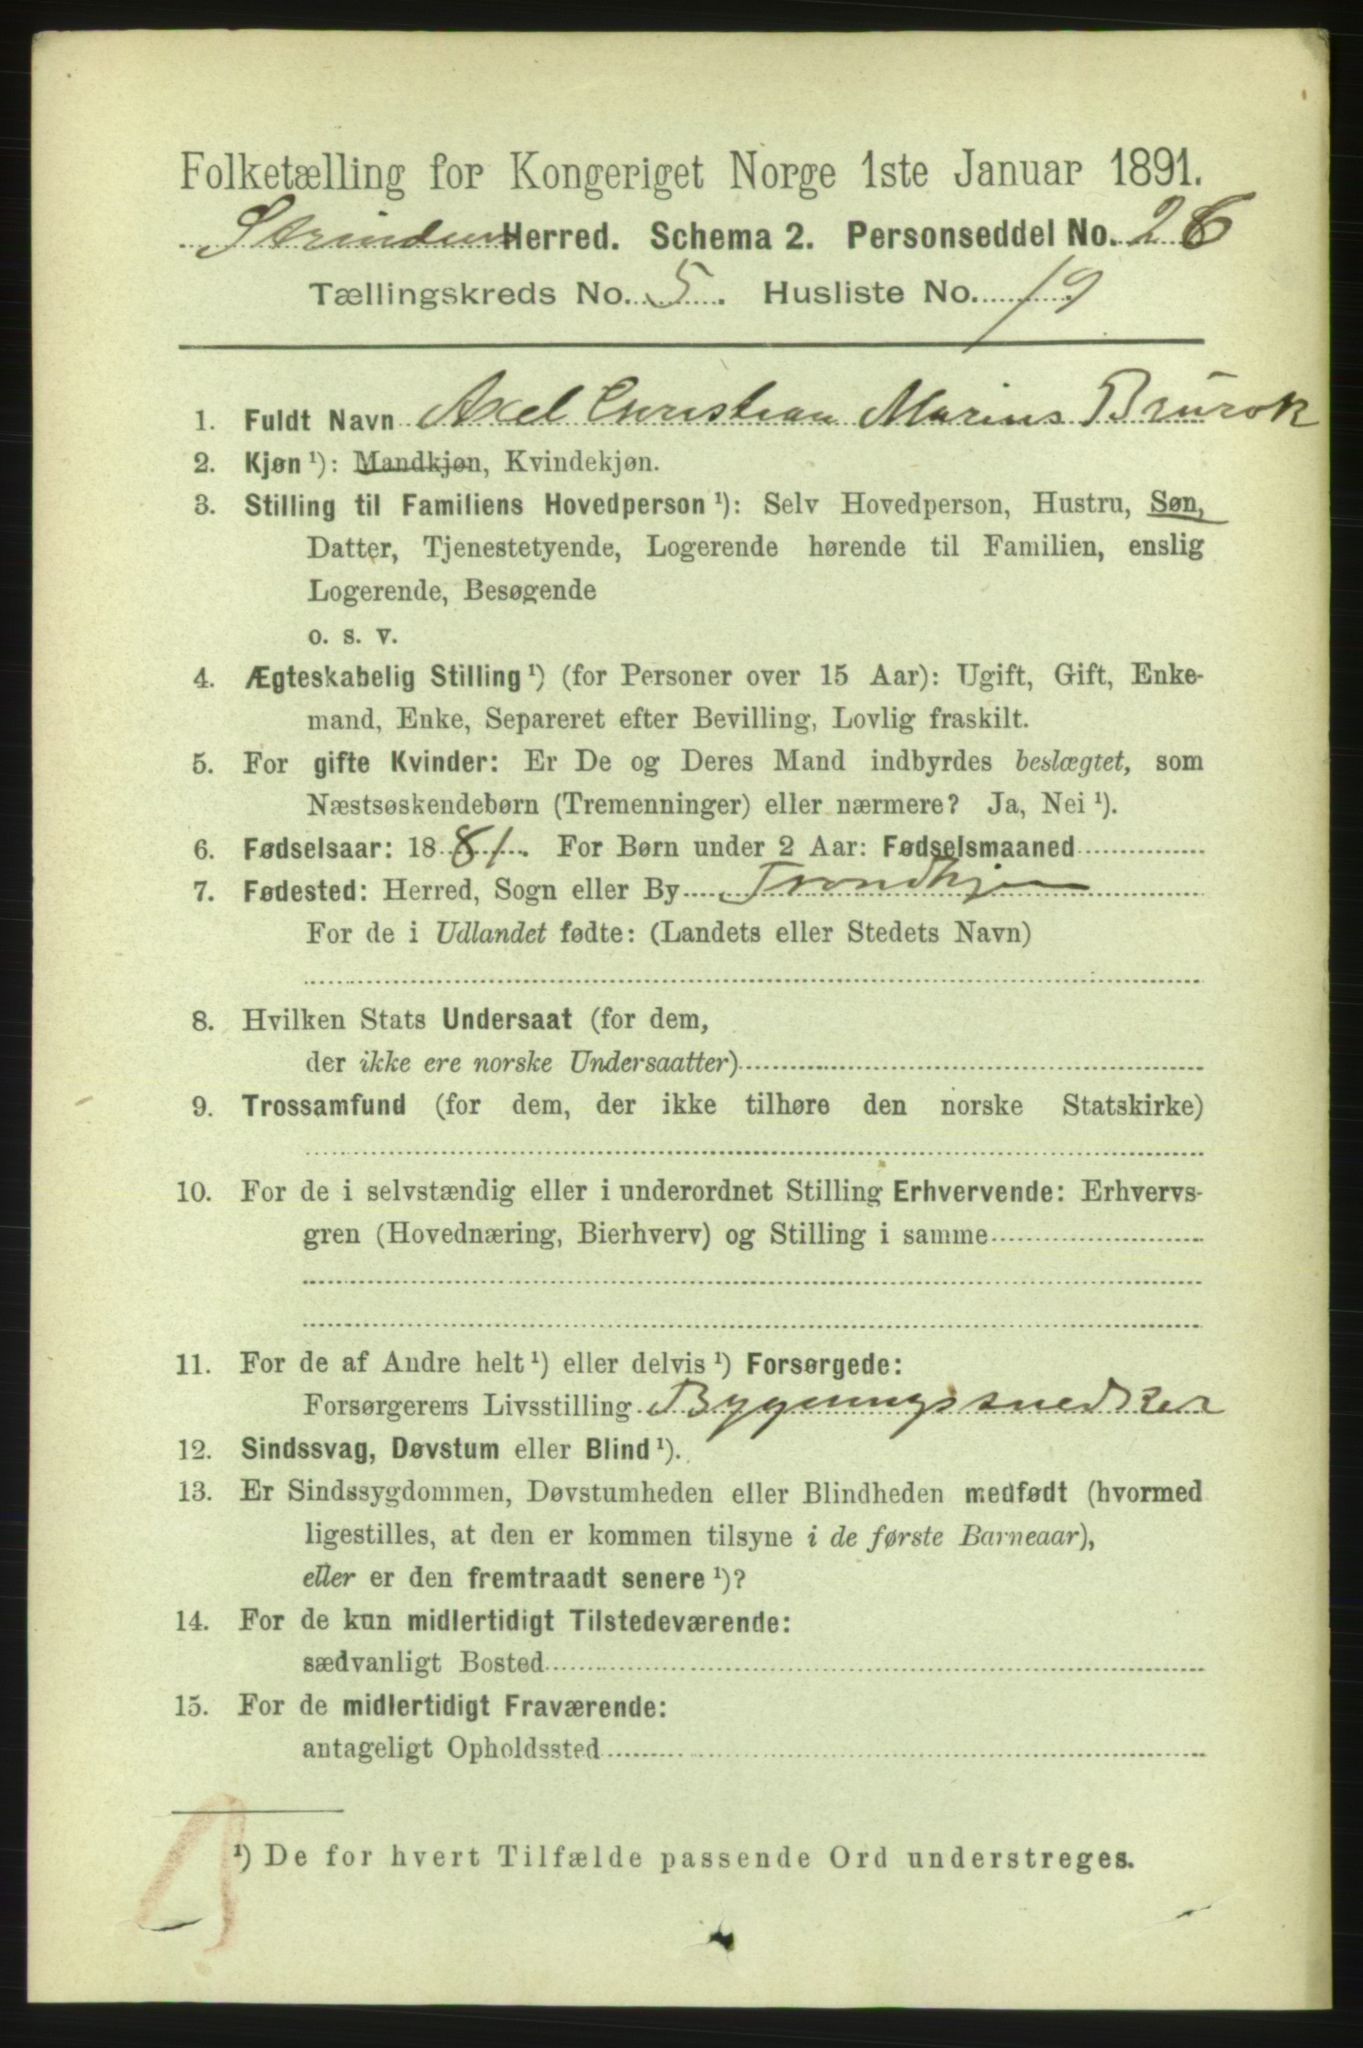 Folketælling for Kongeriget Norge 1ste Januar 1891.
Strinden Herred. Schema 2. Personseddel No. 26
Tællingskreds No. 5. Husliste No. 19
1. Fuldt Navn Axel Christian Marius Brurok
2. Kjøn ¹): Mandkjøn, Kvindekjøn.
3. Stilling til Familiens Hovedperson ¹): Selv Hovedperson, Hustru, Søn,
Datter, Tjenestetyende, Logerende hørende til Familien, enslig
Logerende, Besøgende
o. s. v.
4. Ægteskabelig Stilling ¹) (for Personer over 15 Aar): Ugift, Gift, Enke-
mand, Enke, Separeret efter Bevilling, Lovlig fraskilt.
5. For gifte Kvinder: Er De og Deres Mand indbyrdes beslægtet, som
Næstsøskendebørn (Tremenninger) eller nærmere? Ja, Nei ¹).
6. Fødselsaar: 1881. For Børn under 2 Aar: Fødselsmaaned
7. Fødested: Herred, Sogn eller By Trondhjem
For de i Udlandet fødte: (Landets eller Stedets Navn)
8. Hvilken Stats Undersaat (for dem,
der ikke ere norske Undersaatter)
9. Trossamfund (for dem, der ikke tilhøre den norske Statskirke)
10. For de i selvstændig eller i underordnet Stilling Erhvervende: Erhvervs-
gren (Hovednæring, Bierhverv) og Stilling i samme
11. For de af Andre helt ¹) eller delvis ¹) Forsørgede:
Forsørgerens Livsstilling Bygningssnedker
12. Sindssvag, Døvstum eller Blind ¹).
13. Er Sindssygdommen, Døvstumheden eller Blindheden medfødt (hvormed
ligestilles, at den er kommen tilsyne i de første Barneaar),
eller er den fremtraadt senere ¹)?
14. For de kun midlertidigt Tilstedeværende:
sædvanligt Bosted
15. For de midlertidigt Fraværende:
antageligt Opholdssted
¹) De for hvert Tilfælde passende Ord understreges.